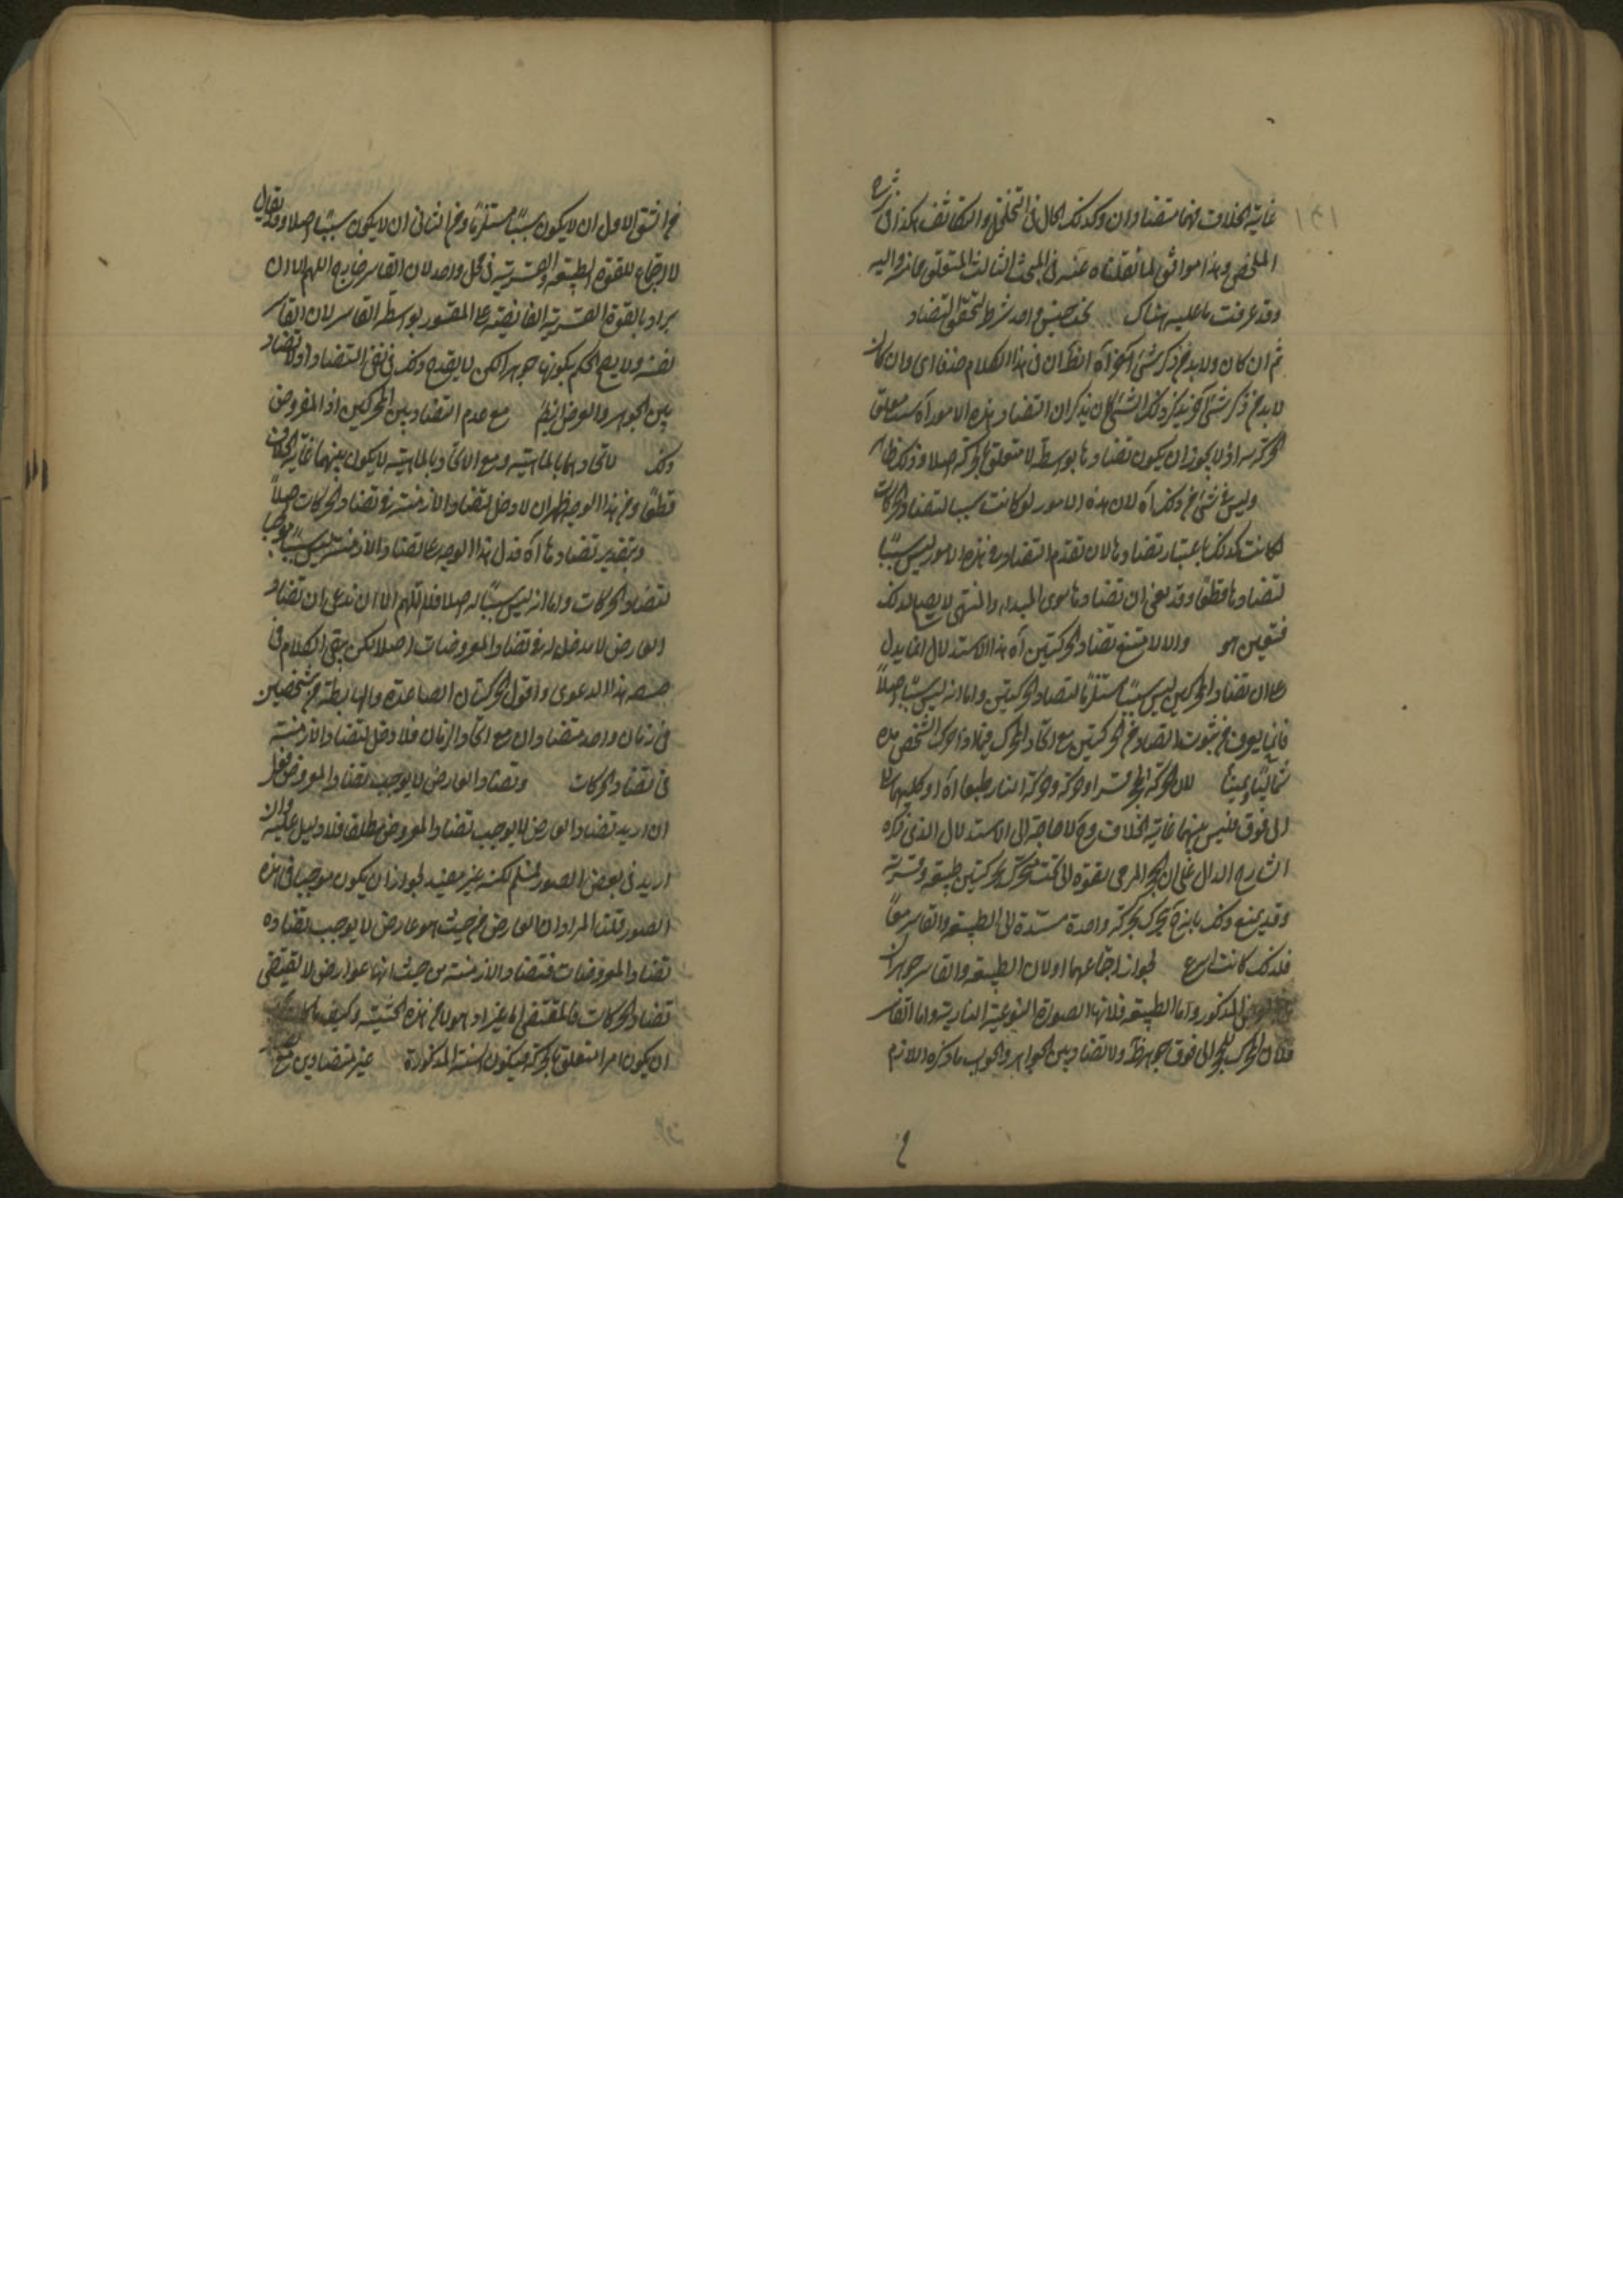 غاية الخلاف فهما متضادان وكذلك الحال فى التخلخل والتكاثف هكذا فى شرح
الملخص وهذا موافق لما نقلناه عنه فى المبحث الثالث المتعلق بما فيه واليه
وقد عرفت ما عليه هناك تحت جنس واحد شرط لتحقق التضاد
ثم ان كان ولا بد من ذكر شئ آخر آه الظ ان فى هذا الكلام حذفا اى وان كان
لا بد من ذكر شئ آخر يذكر ذلك الشئ كان يذكر ان التضاد بهذه الامور آه ست متعلق
الحركة به اذ لا يجوز ان يكون تضادها بواسطة لا متعلق بالحركة اصلا وذلك ظاهر
وليس شئ من ذلك آه لان هذه الامور لو كانت سببا لتضاد الحركات
لكانت كذلك باعتبار تضادها لان تقدم التضاد فى هذه الامور ليس سببا
لتضادها قطعا وقد نفى ان تضادها سوى المبدء والمنتهى لا يصلح لذلك
فتعين هو والا لامتنع تضاد الحركتين آه هذا الاستدلال انما يدل
على ان تضاد المحركين ليس سببا مستلزما لتضاد الحركتين واما انه ليس سببا اصلا
فانما يعرف من ثبوت التضاد من الحركتين مع اتحاد المحرك فيما اذا تحرك الشخص مرة
شمالا ويمينا لان الحركة الحجر قسرا او حركة وحركة النار طبعا آه او كليهما
الى فوق فليس بينهما غاية الخلاف وح لا حاجة الى الاستدلال الذى ذكره
الشارح الدال على ان الحجر المرمى بقوة الى تحت متحرك بحركتين طبيعية وقسرية
وقد يمنع ذلك بانه ح يتحرك بحركة واحدة مستندة الى الطبيعة والقاسر معا
فلذلك كانت اسرع لجواز اجتماعهما اولان الطبيعة والقاسر جوهران
المذكور واما الطبيعة فلانها الصورة النوعية النارية واما القاسر
فلان المحرك للحجر الى فوق جوهر ظ ولا تضاد بين الجواهر والجواب ما ذكره اللازم
من الشق الاول ان لا يكون سببا مستلزما ومن الثانى ان لا يكون سببا اصلا وقد يقال
لا اجتماع للقوة الطبيعية والقسرية فى محل واحد لان القاسر خارج اللهم الا ان
يراد بالقوة القسرية الفايضة على المقسور بواسطة القاسر لان القاسر
نفسه ولا يصح الحكم بكونها جوهرا لكن لا يقدح ذلك فى نفى التضاد اذ لا تضاد
بين الجوهر والعرض ايضا مع عدم التضاد بين المحركين اذ المفروض
ذلك لاتحادهما بالماهية ومع الاتحاد بالماهية لا يكون بينهما غاية الخلاف
قطعا ومن هذا الوجه ظهر ان لا دخل لتضاد الازمنة فى تضاد الحركات اصلا
وبتقدير تضادها آه فدل هذا الوجه على تضاد الازمنة ليس سببا موجبا
لتضاد الحركات واما انه ليس سببا له اصلا فلا اللهم الا ان ندعى ان تضاد
العارض لا مدخل له فى تضاد المعروضات اصلا لكن يبقى الكلام فى
صحة هذا الدعوى واقول الحركتان الصاعدة والهابطة من شخصين
فى زمان واحد متضادان مع اتحاد الزمان فلا دخل لتضاد الازمنة
فى تضاد الحركات وتضاد العارض لا يوجب تضاد المعروض
ان اريد تضاد العارض لا يوجب تضاد المعروض مطلقا فلا دليل عليه وان
اريد فى بعض الصور فمسلم لكنه غير مفيد لجواز ان يكون موجبا فى هذه
الصور قلنا المراد ان العارض من حيث هو عارض لا يوجب تضاده
تضاد المعروضات فتضاد الازمنة من حيث انها عوارض لا تقتضى
تضاد الحركات فالمقتضى لها غيرا ذ هو لا من هذه الحيثية وكيف ما كان
ان يكون امرا متعلق بالحركة فيكون الستة المذكورة غير متضادين مع